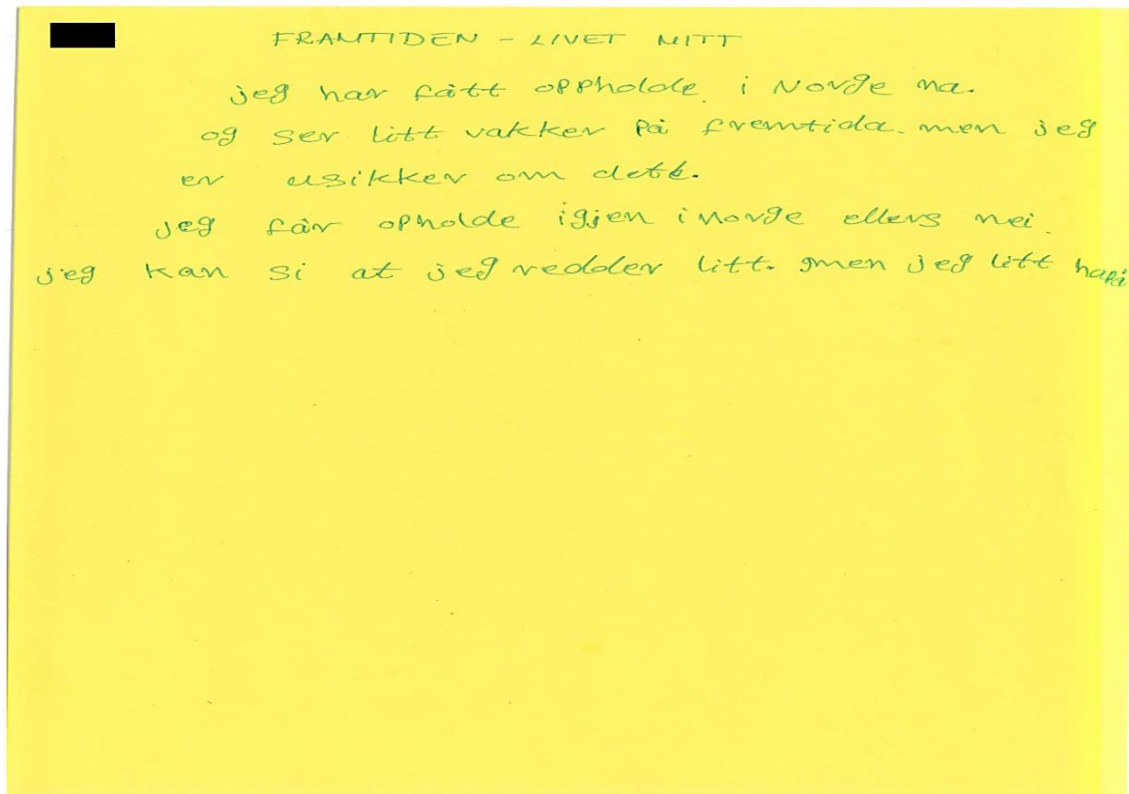 FRAMTIDEN - LIVET MITT
jeg har fått oppholde. i Norge na.
og ser litt vakker på fremtida. men jeg
er usikker om dett.
jeg får opholde igjen i Norge ellers nei.
jeg kan si at jeg redder litt. men jeg litt håpå